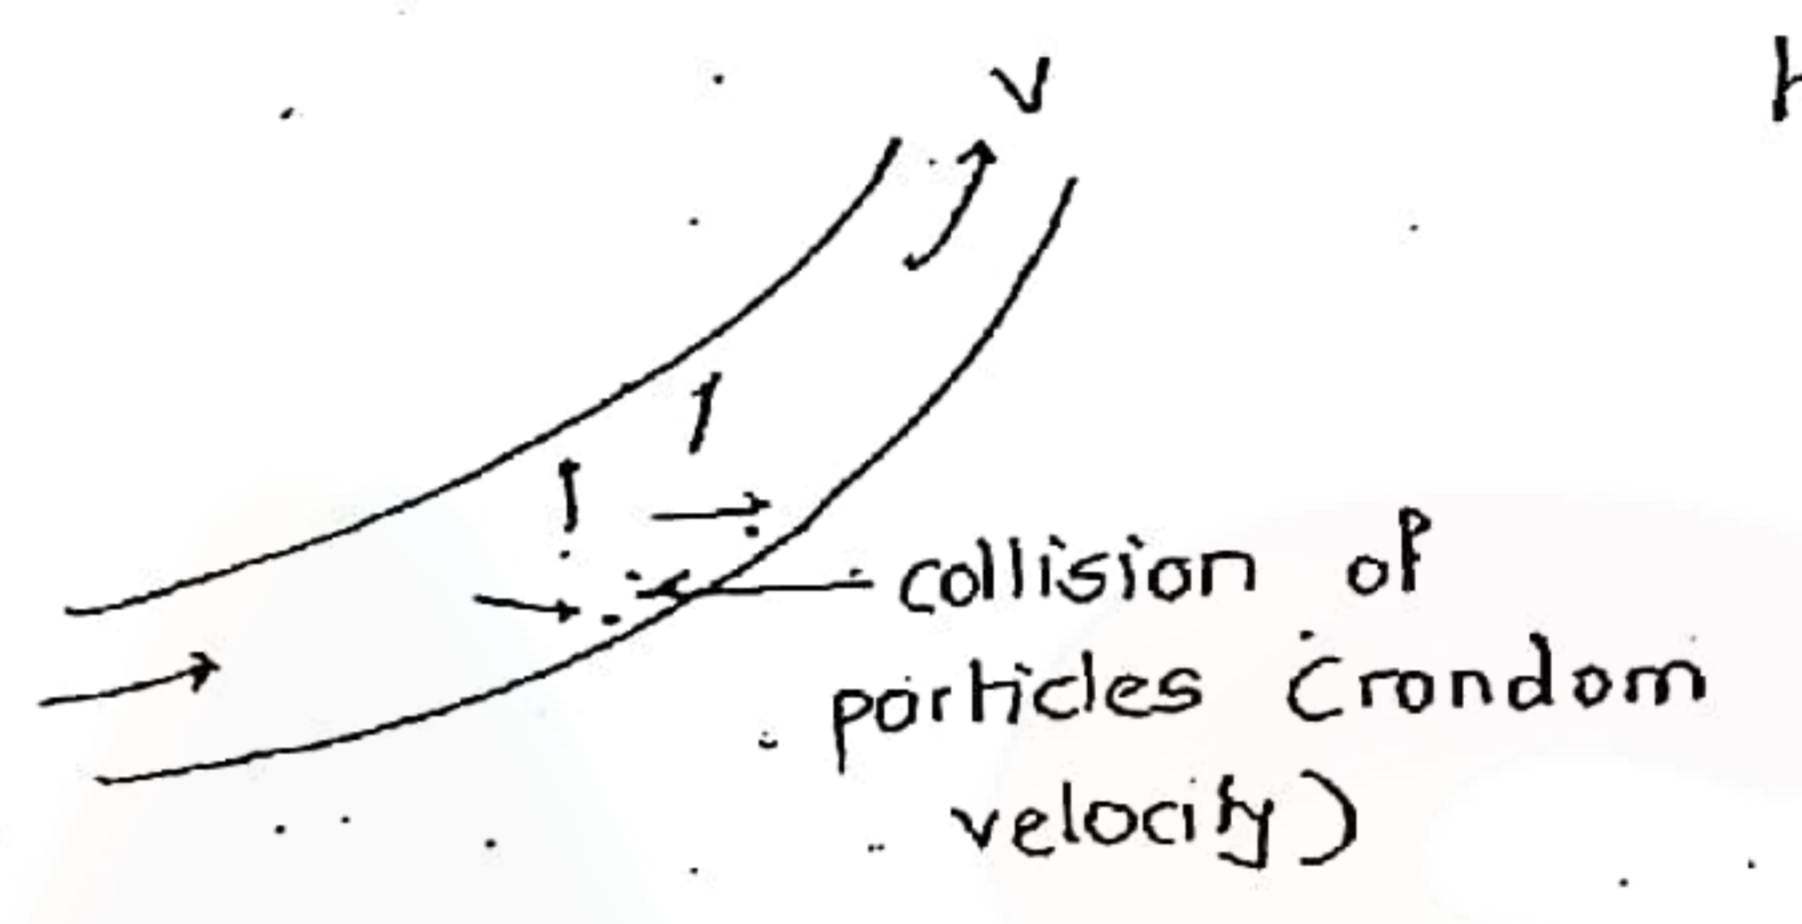 V
collision of
particles (random
velocity)